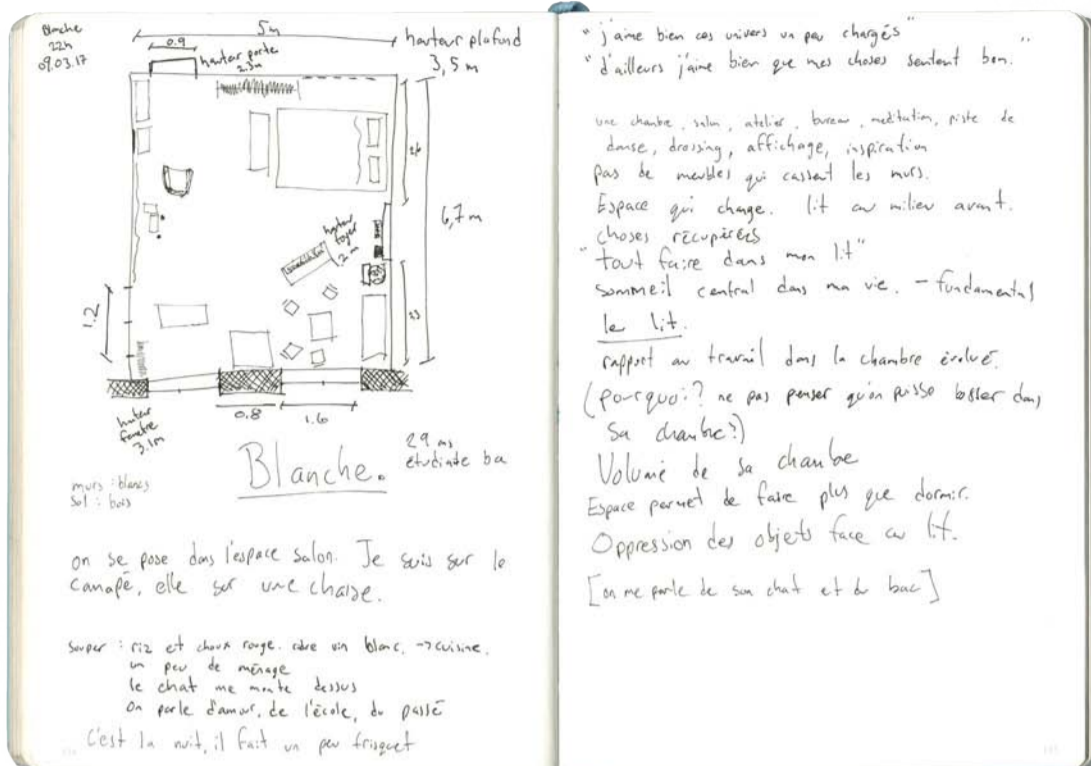 Blanche
22h
09.03.17
5m
hauteur plafond
3,5 m
0.9
hauteur porte
2.3m
2.6
6,7 m
hauteur
foyer
1.2 m
1.2
2.3
0.8
1.6
hauteur
fenêtre
3.1m
murs : blancs
sol : bois
Blanche.
29 ans
étudiante ba
on se pose dans l'espace salon. Je suis sur le
canapé, elle sur une chaise.
souper : riz et choux rouge. vin blanc. → cuisine.
un peu de ménage
le chat me monte dessus
On parle d'amour, de l'école, du passé
C'est la nuit, il fait un peu frisquet
"j'aime bien ces univers un peu chargés"
"d'ailleurs j'aime bien que mes choses sentent bon."
une chambre, salon, atelier, bureau, méditation, piste de
danse, dressing, affichage, inspiration
pas de meubles qui cassent les murs.
Espace qui change. lit au milieu avant.
choses récupérées
"tout faire dans mon lit"
sommeil central dans ma vie. - fundamental
le lit.
rapport au travail dans la chambre évolué.
(pourquoi? ne pas penser qu'on puisse bosser dans
sa chambre?)
Volume de sa chambre
Espace permet de faire plus que dormir.
Oppression des objets face au lit.
[on me parle de son chat et du bac]